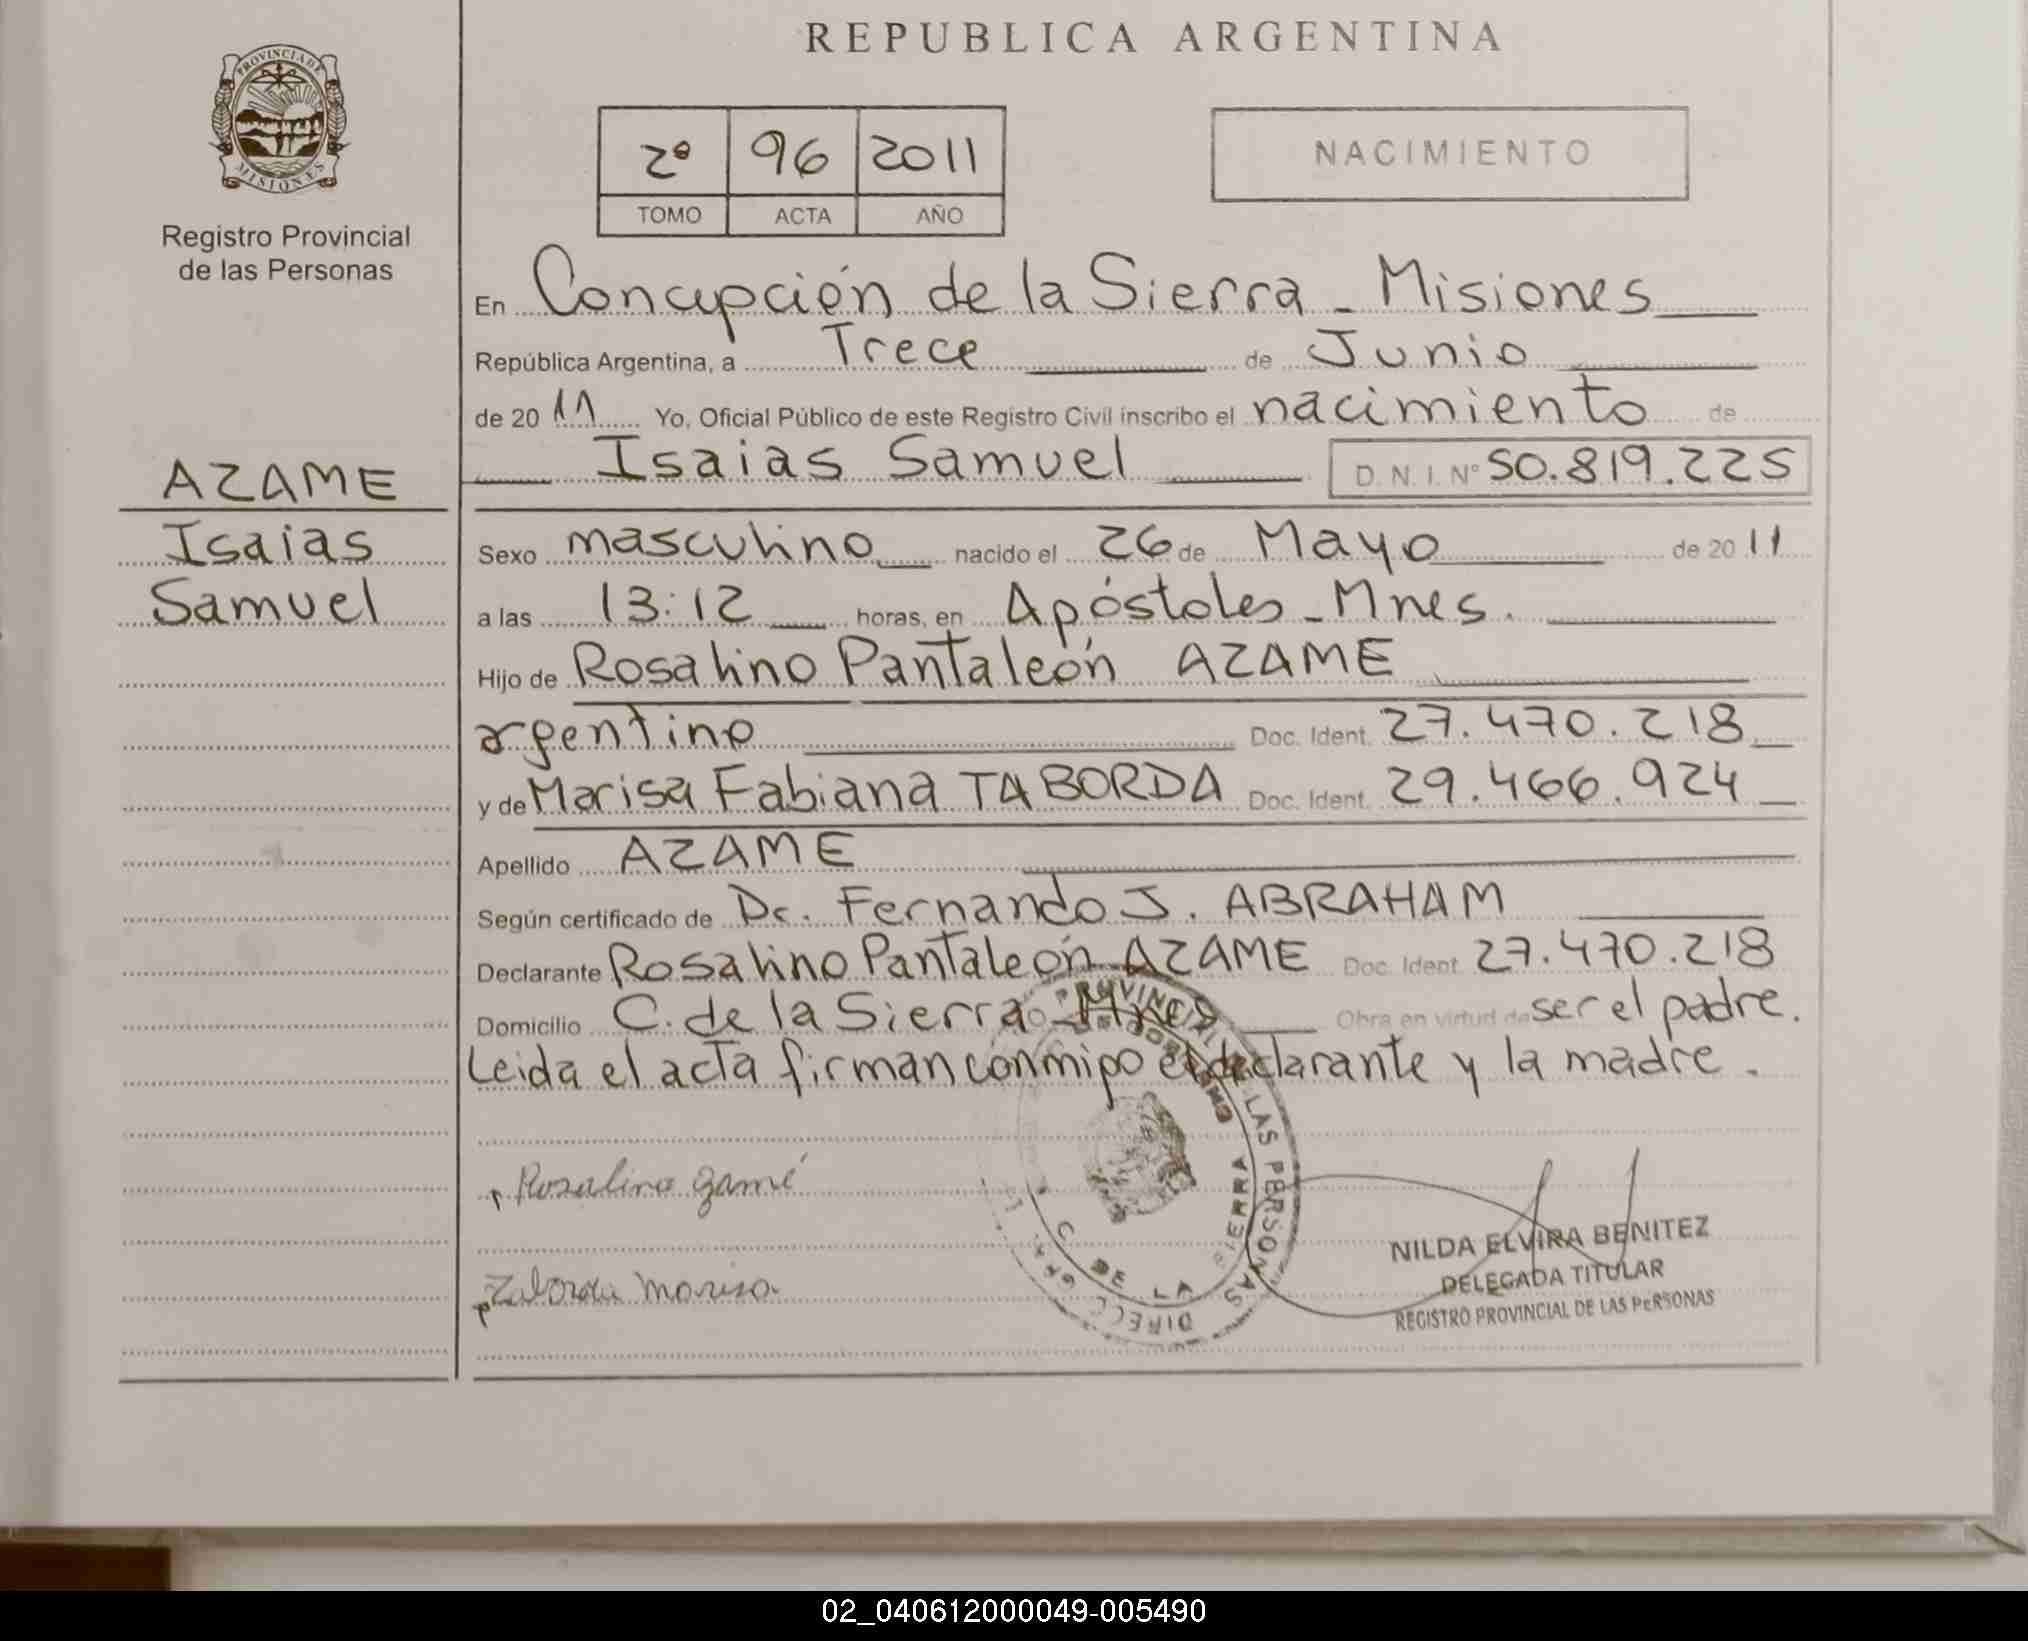 REPUBLICA ARGENTINA
PROVINCIA DE
MISIONES
Registro Provincial
de las Personas
2º 96 2011
TOMO ACTA AÑO
NACIMIENTO
En Concepción de la Sierra - Misiones
República Argentina, a Trece de Junio
de 2011 Yo, Oficial Público de este Registro Civil inscribo el nacimiento de
Isaias Samuel D.N.I. Nº 50.819.225
AZAME
Isaias
Samuel
Sexo masculino nacido el 26 de Mayo de 2011
a las 13:12 horas, en Apóstoles - Mnes.
Hijo de Rosalino Pantaleón AZAME
argentino Doc. Ident. 27.470.218
y de Marisa Fabiana TABORDA Doc. Ident. 29.466.924
Apellido AZAME
Según certificado de Dr. Fernando J. ABRAHAM
Declarante Rosalino Pantaleón AZAME Doc. Ident. 27.470.218
Domicilio C. de la Sierra - Mnes Obra en virtud de ser el padre.
Leida el acta firman conmigo el declarante y la madre.
Rosalino Zamé
Taborda Marisa
C. DE LA SIERRA
LAS PERSONAS
NILDA ELVIRA BENITEZ
DELEGADA TITULAR
REGISTRO PROVINCIAL DE LAS PERSONAS
02_040612000049-005490